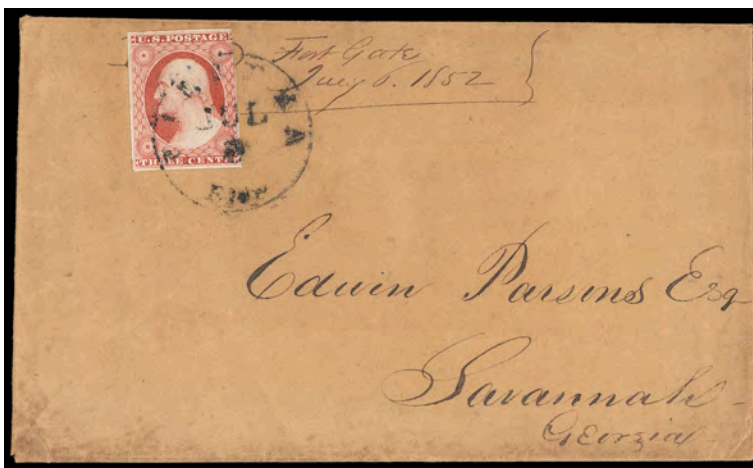 U.S. POSTAGE
THREE CENTS
Fort Gates
July 6. 1852
PILATKA
JUL
Flor
Edwin Parsons Esq
Savannah
Georgia